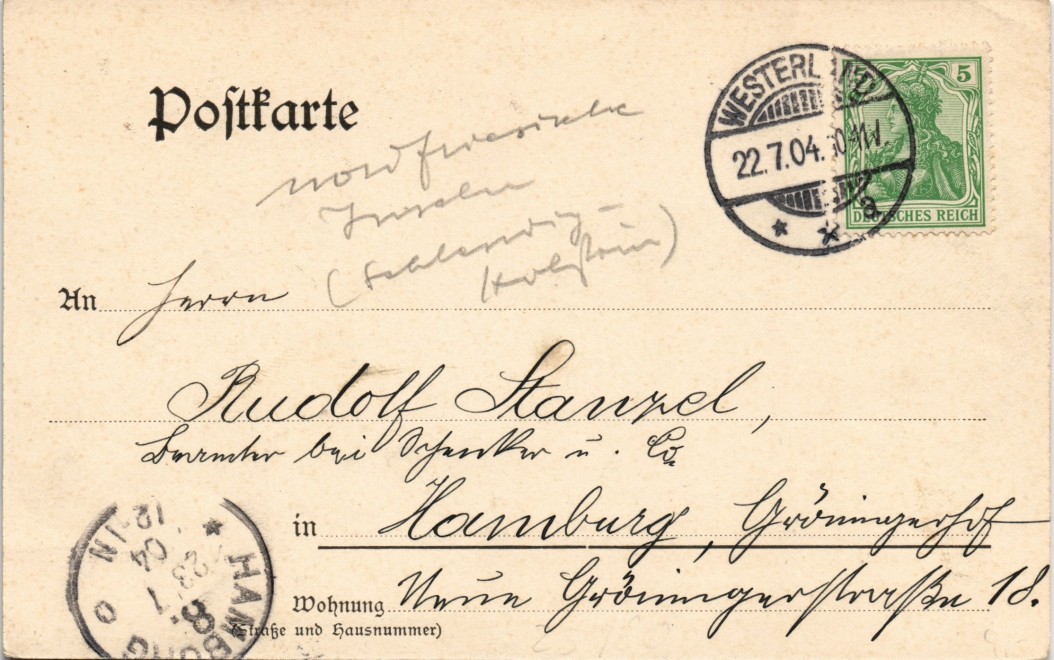 Postkarte
WESTERLAND
22.7.04. 10-11V.
* * a
5
DEUTSCHES REICH
nordfriesische
Inseln
(Schleswig-
Holstein)
An Herrn
Rudolf Stanzel,
Beamter bei Schenker u. Co
in Hamburg, Gröningerhof
Wohnung Neue Gröningerstraße 18.
(Straße und Hausnummer)
* HAMBURG
23.7.04
12-1N
8.